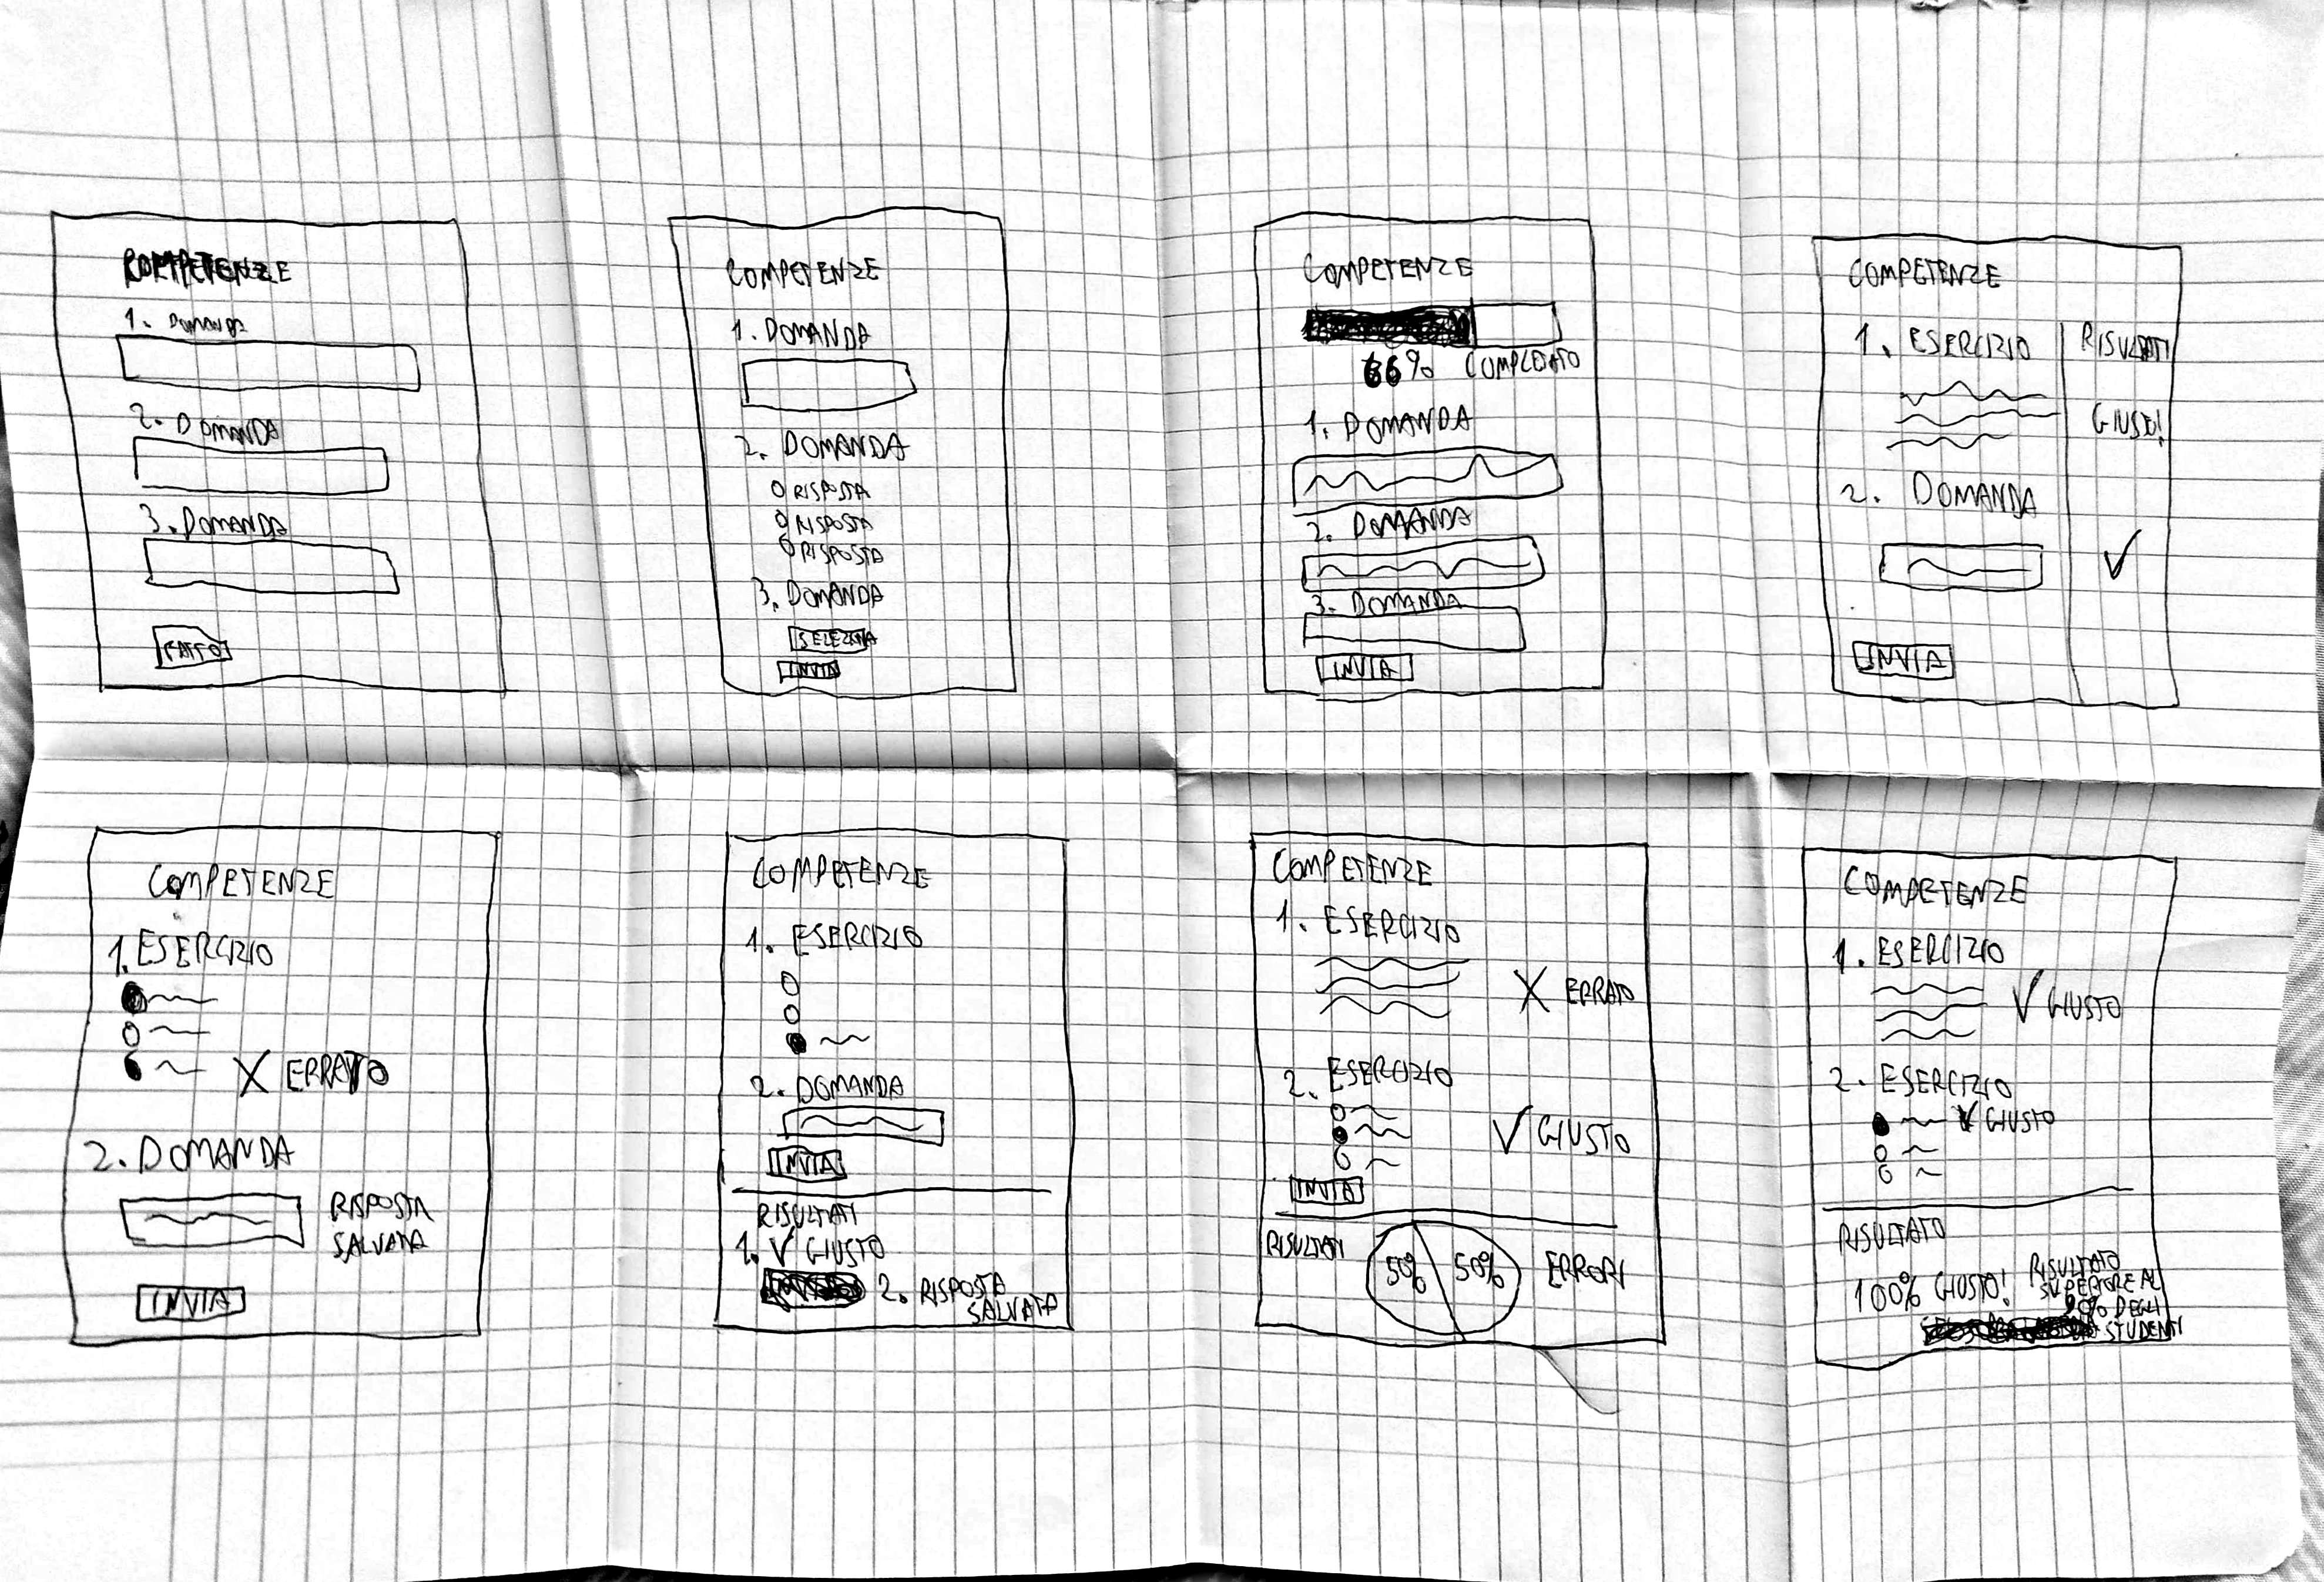 COMPETENZE
1. DOMANDA
2. DOMANDA
3. DOMANDA
FATTO
COMPETENZE
1. DOMANDA
2. DOMANDA
RISPOSTA
RISPOSTA
RISPOSTA
3. DOMANDA
SELEZIONA
INVIA
COMPETENZE
66% COMPLETATO
1. DOMANDA
2. DOMANDA
3. DOMANDA
INVIA
COMPETENZE
1. ESERCIZIO
RISULTATI
GIUSTO!
2. DOMANDA
INVIA
COMPETENZE
1. ESERCIZIO
X ERRATO
2. DOMANDA
RISPOSTA
SALVATA
INVIA
COMPETENZE
1. ESERCIZIO
2. DOMANDA
INVIA
RISULTATI
1. ✓ GIUSTO
2. RISPOSTA
SALVATA
COMPETENZE
1. ESERCIZIO
X ERRATO
2. ESERCIZIO
✓ GIUSTO
INVIA
RISULTATI 50% 50% ERRORI
COMPETENZE
1. ESERCIZIO
✓ GIUSTO
2. ESERCIZIO
✓ GIUSTO
RISULTATO
100% GIUSTO!
RISULTATO
SUPERIORE AL
90% DEGLI
STUDENTI